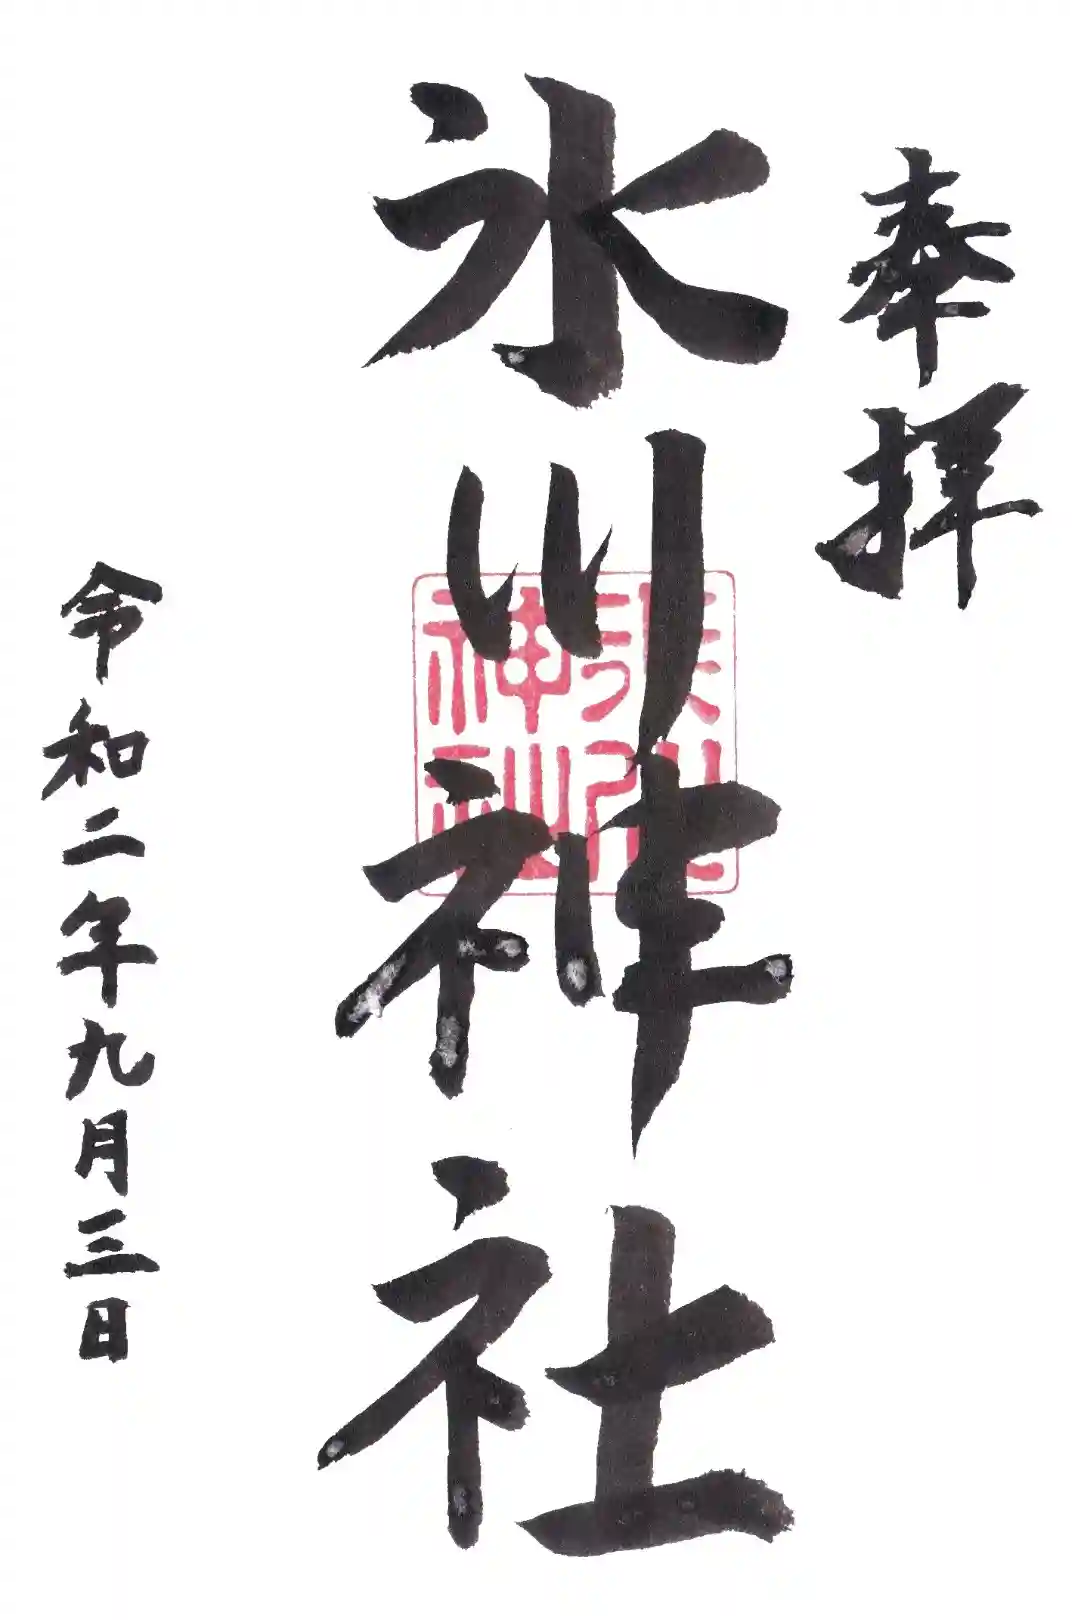 奉拝
氷川神社
氷川神社
令和二年九月三日